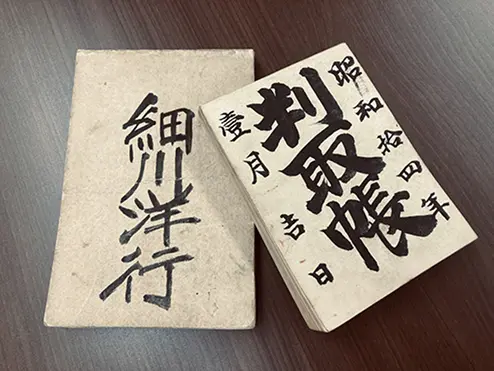 細川洋行
昭和拾四年
判取帳
壹月吉日